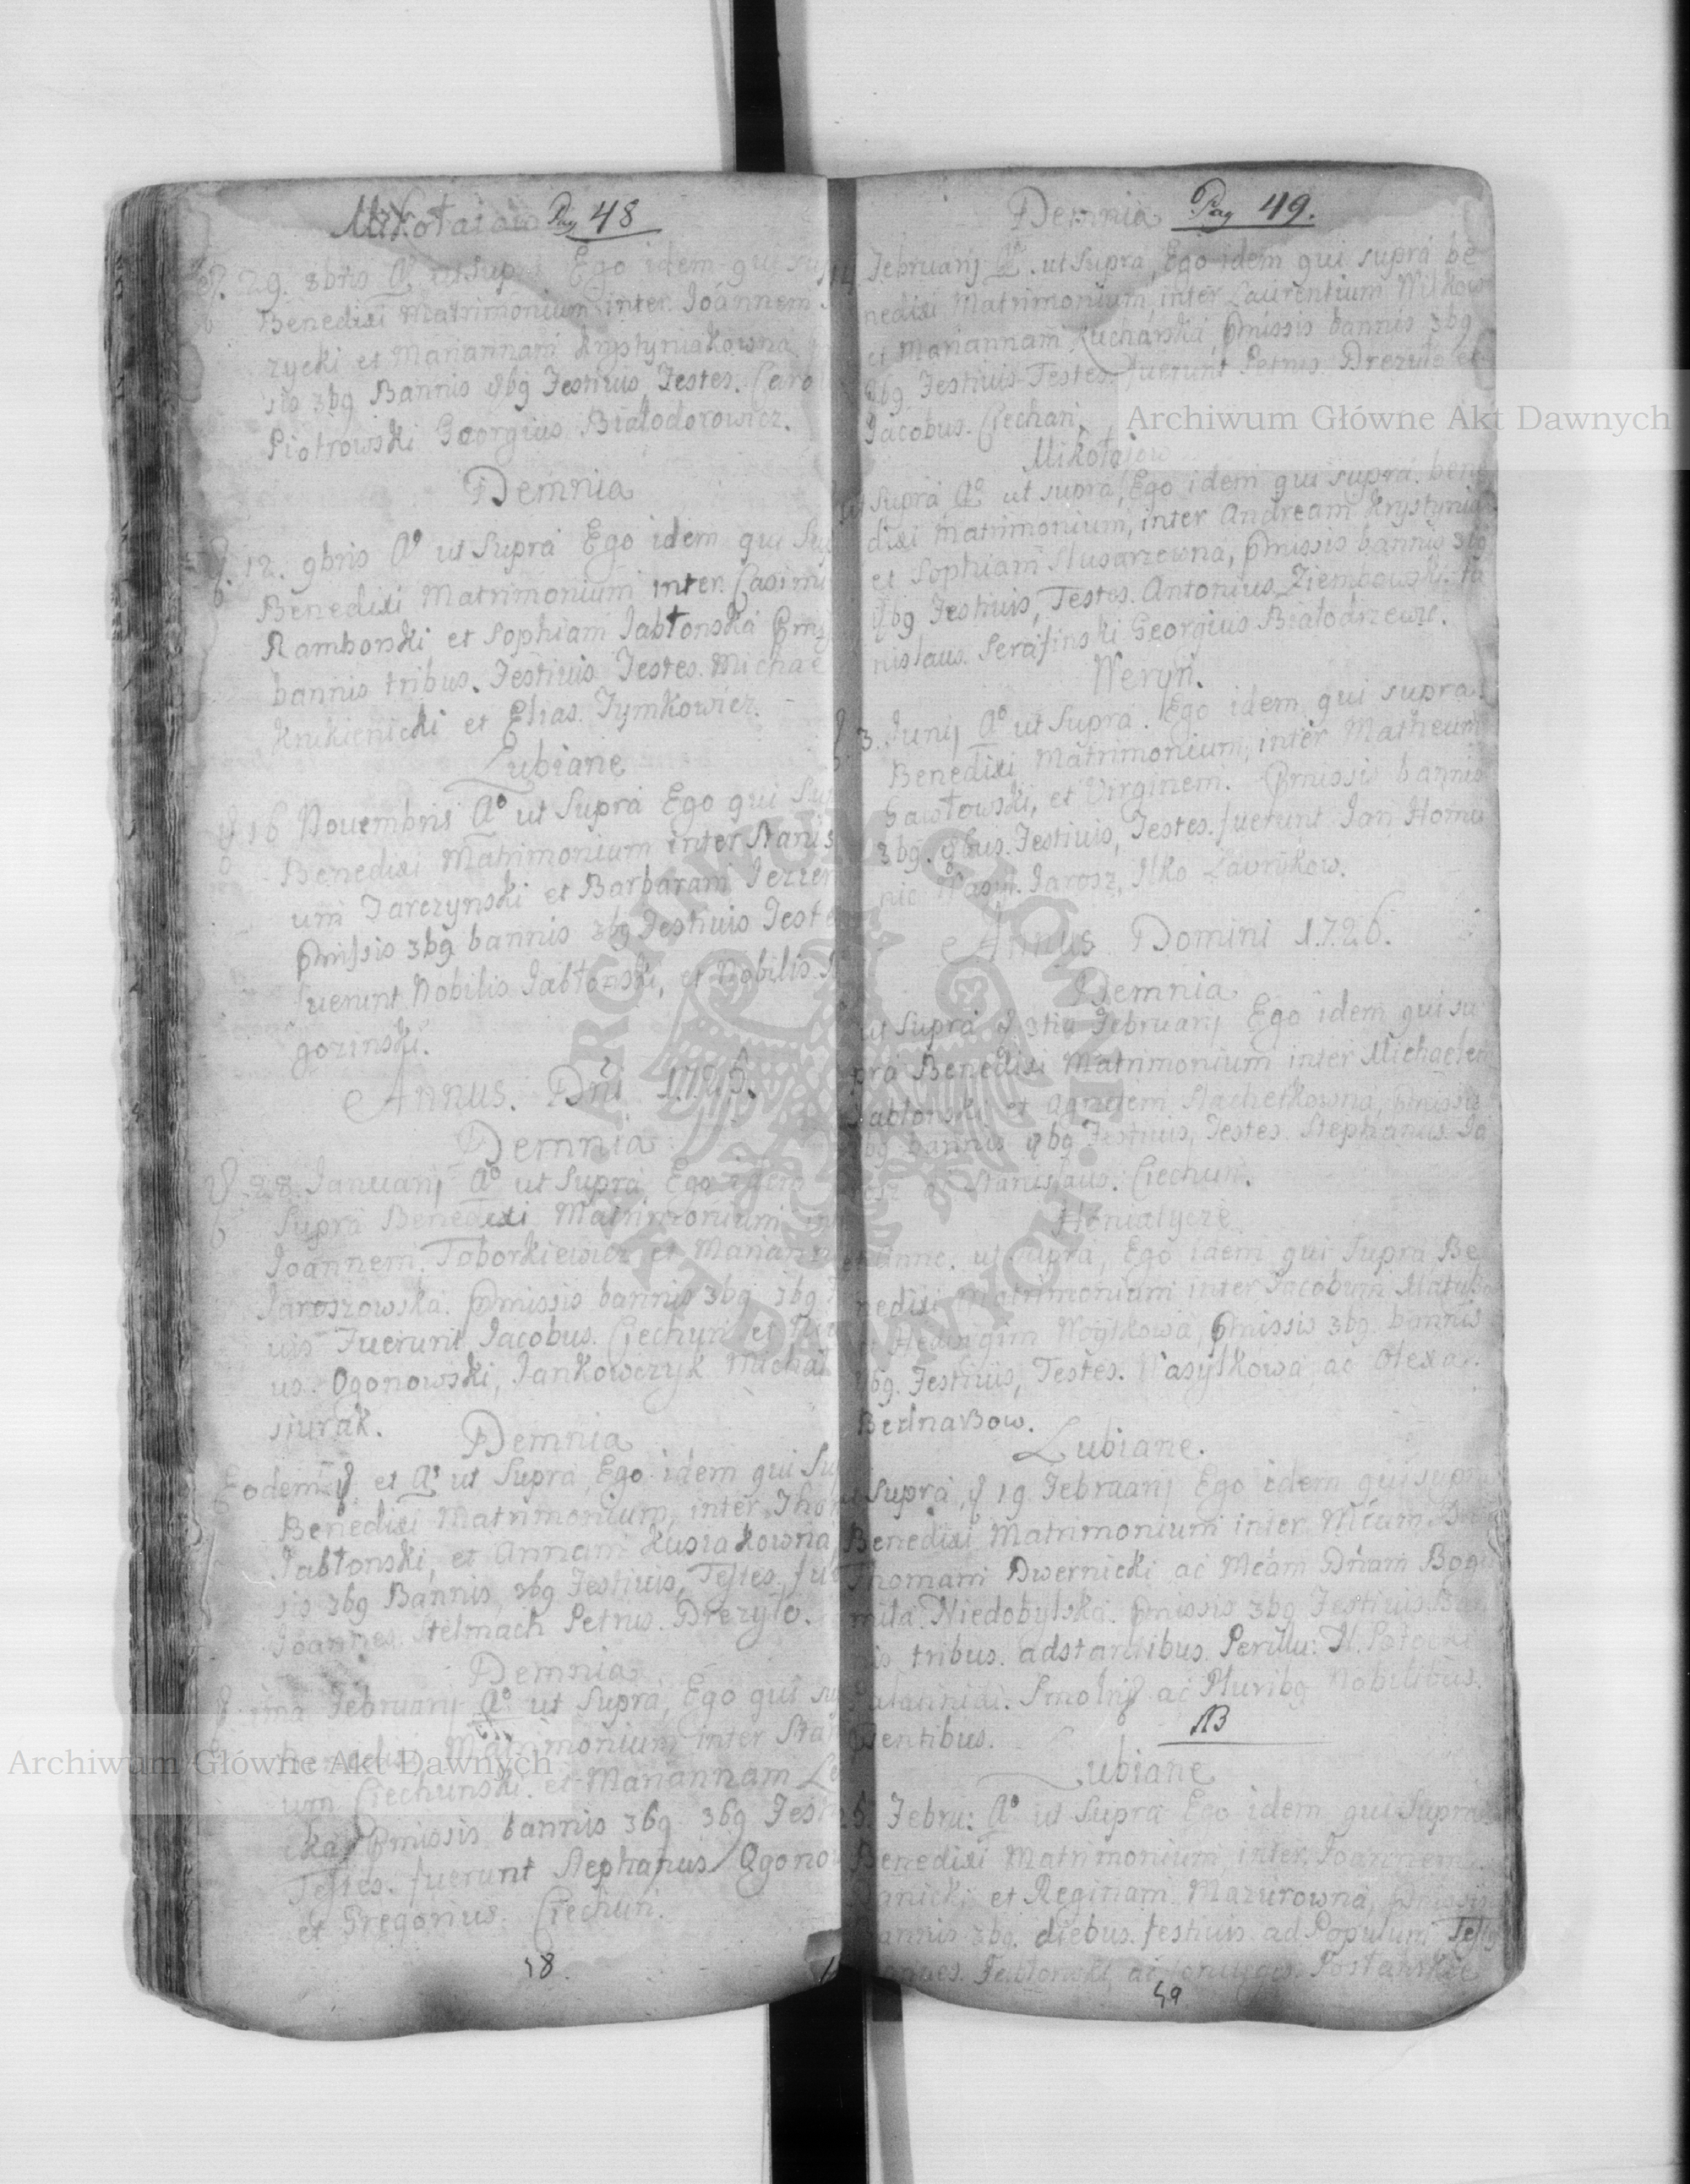 Mikołaiow Pag 48
29. 8bris Aº ut supra Ego idem qui
Benedixi Matrimonium inter Joannem
rycki et Mariannam Krystyniakowna
sis 3bq Bannis qbq Festivis Testes. Caro
Piotrowski Georgius Białodorowicz.
Demnia
12. 9bris Aº ut Supra Ego idem qui Sup
Benedixi Matrimonium inter Casimi
Ramborski et Sophiam Jabłonska
bannis tribus. Festivis Testes. Michae
Krukienicki et Elias. Tymkowicz.
Lubiane
16 Novembris Aº ut Supra Ego qui Sup
Benedixi Matrimonium inter Stanis
um Tarczynski et Barbaram
Pmissis 3bq bannis 3bq Festivis Test
fuerunt Nobilis Jabłonski, et Nobilis
gorinski.
Annus. Dni 1725.
Demnia
28. Januarij Aº ut Supra, Ego idem
Supra Benedixi Matrimonium
Joannem. Toborkiewicz et Mariann
Jaroszowska. Pmissis bannis 3bq 3bq
uis Fuerunt Jacobus. Ciechun et
us. Ogonowski, Jankowczyk Michał
siurak.
Demnia
Eodem et Aº ut Supra, Ego idem qui Su
Benedixi Matrimonium, inter Thom
Jabłonski, et Annam Kusiakowna
sis 3bq Bannis, 3bq Festivis, Testes, fue
Joannes. Stelmach Petrus. Drezyło.
Demnia
ima Februarij Aº ut Supra, Ego qui su
Benedixi Matrimonium inter Sta
um Ciechunski. et Mariannam
ika, Pmissis bannis 3bq 3bq Fest
Testes. fuerunt Stephanus Ogono
et Gregorius. Ciechun.
58.
Demnia Pag 49.
Februarij Aº. ut Supra, Ego idem qui supra be
nedixi Matrimonium inter Laurentium Wilkow
et Mariannam Kucharska, Pmissis bannis 3bq
qbq. Festivis Testes. fuerunt Petrus. Drezyło et
Jacobus. Ciechan
Mikołajow
ut supra Aº ut supra, Ego idem qui supra. bene
dixi matrimonium, inter Andream Krystynia
et Sophiam Slusarzewna, Pmissis bannis 3bq
qbq Festivis, Testes. Antonius Ziembowski. Sta
nislaus. Serafinski Georgius Białodrzewic.
Weryn.
3. Junij Aº ut Supra. Ego idem qui supra.
Benedixi Matrimonium, inter Matheum
Gawłowski, et Virginem. Pmissis bannis
3bq. qbus. Festivis, Testes. fuerunt Jan Homo
nic Wasyl. Jarosz, Ilko Lavrykow.
Annus Domini 1726.
Demnia
ut Supra 3tia Februarij Ego idem qui su
pra Benedixi Matrimonium inter Michaelem
Jabłonski et Agnetem Stachelkowna, Pmissis
3bq bannis qbq Festivis, Testes Stephanus. Ja
rosz ac Stanislaus. Ciechun.
Honiatycze
Anno. ut supra, Ego idem qui Supra Be
nedixi Matrimonium inter Jacobum
et Hedvigim Woytkowa, Pmissis 3bq. bannis
qbq. Festivis, Testes. Wasylkowa, ac Olexa.
Bednarzow.
Lubiane.
Supra, 19 Februarij Ego idem qui supra
Benedixi Matrimonium inter
Thomam Dwernicki ac Dnam Bogu
miła. Niedobylska. Pmissis 3bq Festivis Ban
is tribus. adstantibus. Perillu: Potocki
Palatinidi. ac Pluribq Nobilibus.
sentibus. NB
Lubiane
Febru: Aº ut Supra Ego idem qui Supra
Benedixi Matrimonium inter Joannem
anicki et Reginam. Mazurowna, Pmissis
annis 3bq. diebus. festivis ad Populum Testes
Jabłonski, ac
59
Archiwum Główne Akt Dawnych
Archiwum Główne Akt Dawnych
ARCHIWUM GŁÓWNE AKT DAWNYCH